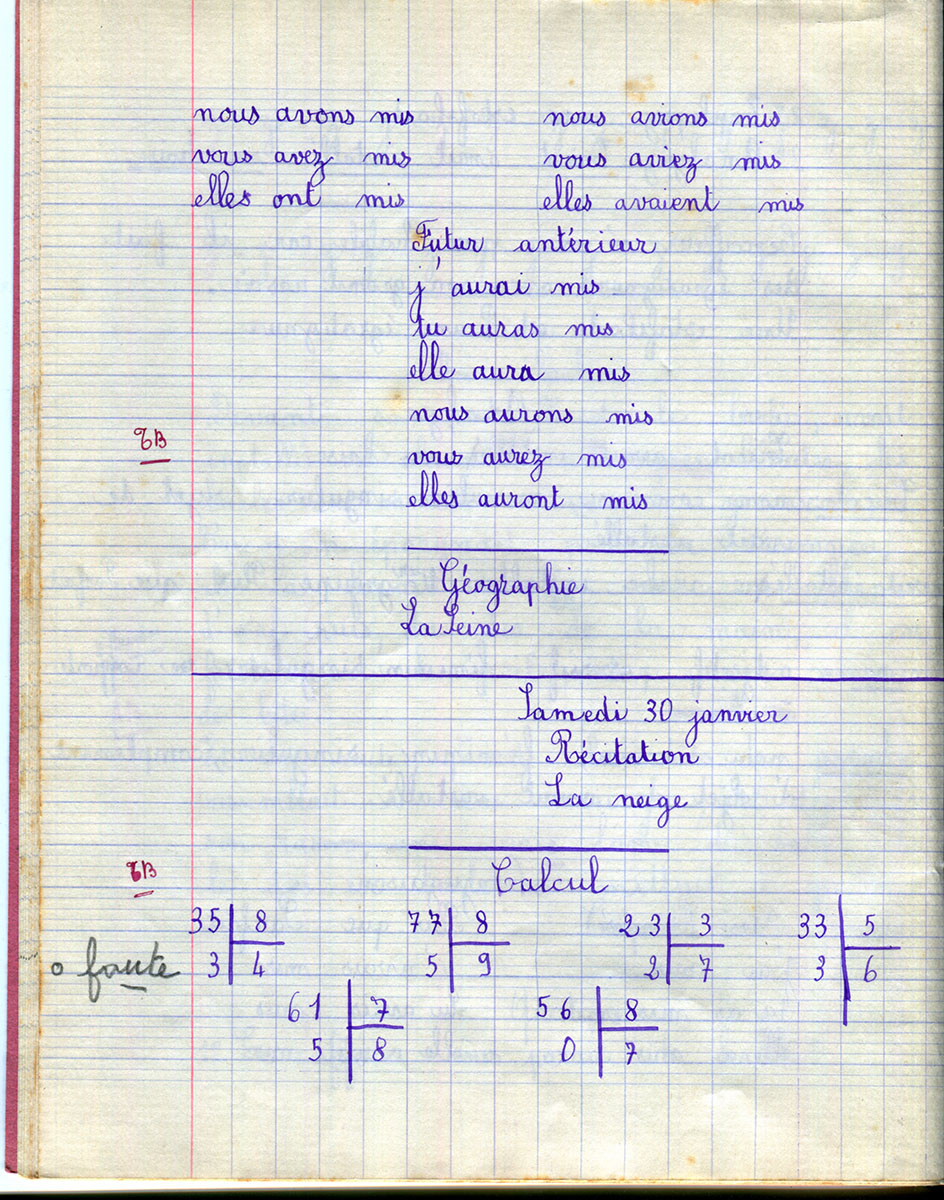 nous avons mis nous avions mis
vous avez mis vous aviez mis
elles ont mis elles avaient mis
Futur antérieur
j'aurai mis
tu auras mis
elle aura mis
nous aurons mis
TB
vous aurez mis
elles auront mis
Géographie
La Seine
Samedi 30 janvier
Récitation
La neige
TB
Calcul
35 8 77 8 23 3 33 5
0 faute 3 4 5 9 2 7 3 6
61 7 56 8
5 8 0 7